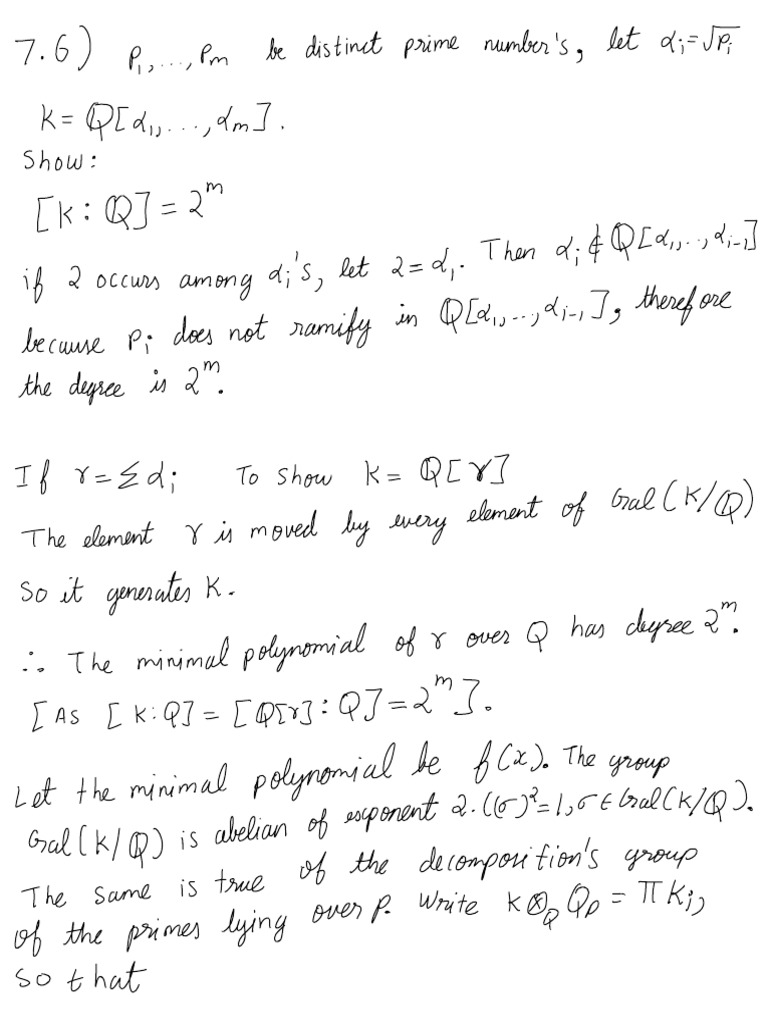 7.6) p₁,...,pₘ be distinct prime number's, let αᵢ=√pᵢ
K= ℚ[α₁,...,αₘ].
Show:
[K:ℚ]=2ᵐ
if 2 occurs among αᵢ's, let 2=α₁. Then αᵢ∉ℚ[α₁,..,αᵢ₋₁]
because pᵢ does not ramify in ℚ[α₁,..,αᵢ₋₁], therefore
the degree is 2ᵐ.
If γ=Σαᵢ To show K= ℚ[γ]
The element γ is moved by every element of Gal(K/ℚ)
So it generates K.
∴ The minimal polynomial of γ over Q has degree 2ᵐ.
[As [K:Q]=[Q[γ]:Q]=2ᵐ].
Let the minimal polynomial be f(x). The group
Gal(K/ℚ) is abelian of exponent 2.((σ)²=1,σ∈Gal(K/ℚ).
The same is true of the decomposition's group
of the primes lying over p. Write K⊗_ℚ ℚₚ=πKᵢ,
so that